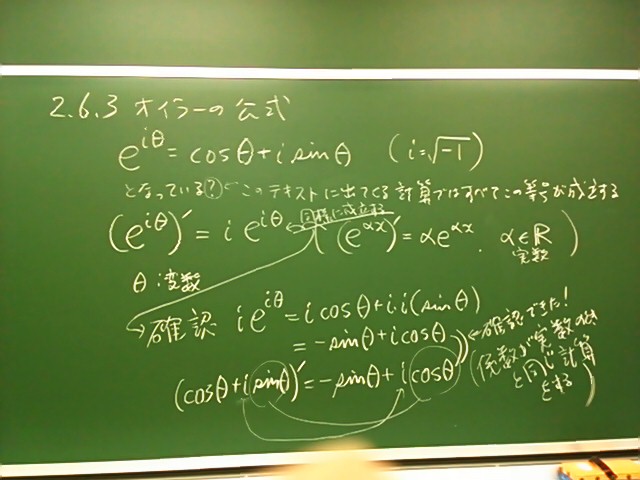 2.6.3 オイラーの公式
e^{iθ} = cosθ + i sinθ (i = √-1)
となっている? ← このテキストに出てくる計算ではすべてこの等号が成立する
同様に成立する
(e^{iθ})' = i e^{iθ} ((e^{αx})' = αe^{αx}, α∈ℝ)
実数
θ:変数
確認 i e^{iθ} = i cosθ + i.i(sinθ)
= -sinθ + i cosθ
確認できた!
(cosθ + i sinθ)' = -sinθ + i cosθ
(係数が実数のとき
と同じ計算
をする)